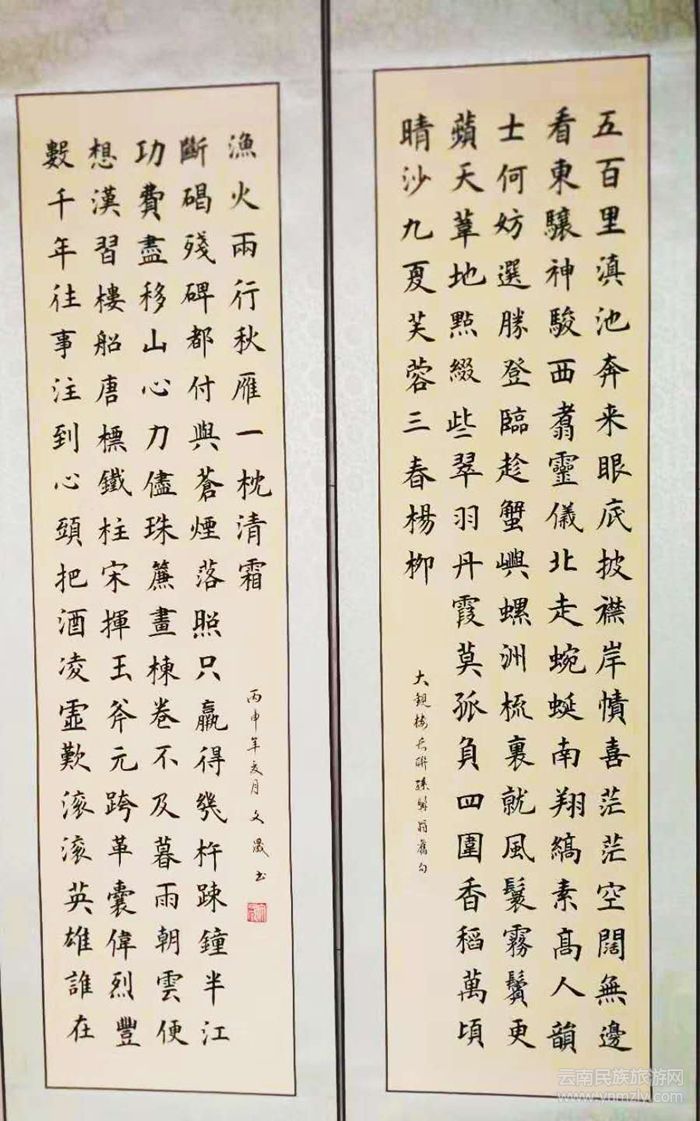 五百里滇池奔来眼底披襟岸幘喜茫茫空闊無邊
看東驤神駿西翥靈儀北走蜿蜒南翔縞素髙人韻
士何妨選勝登臨趁蟹嶼螺洲梳裏就風鬟霧鬢更
蘋天葦地點綴些翠羽丹霞莫孤負四圍香稻萬頃
晴沙九夏芙蓉三春楊柳
大觀樓長聯孫髯翁舊句
數千年往事注到心頭把酒凌虛歎滚滚英雄誰在
想漢習樓船唐標鐵柱宋揮玉斧元跨革囊偉烈豐
功費盡移山心力儘珠簾畫棟卷不及暮雨朝雲便
斷碣殘碑都付與蒼煙落照只贏得幾杵踈鐘半江
漁火兩行秋雁一枕清霜
丙申年亥月文書
云南民族旅游网
www.ynmzly.com